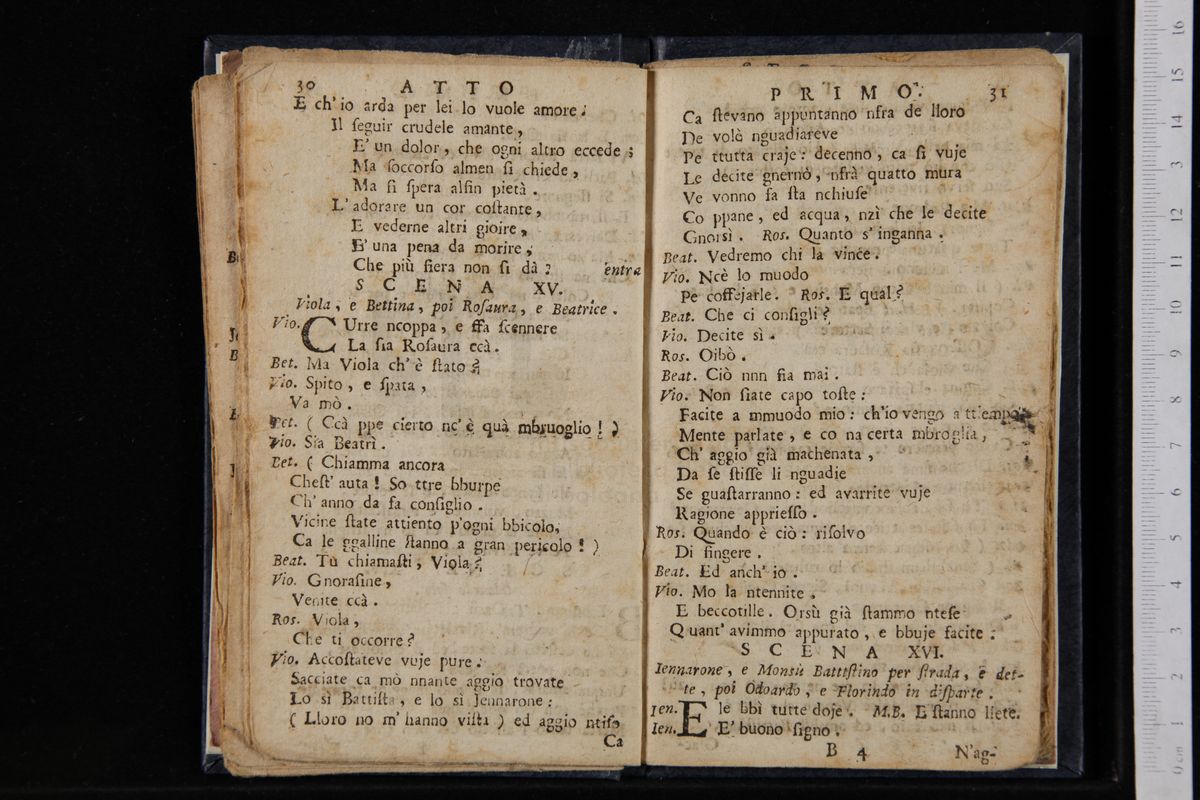 30 ATTO
E ch' io arda per lei lo vuole amore:
Il ſeguir crudele amante,
E' un dolor, che ogni altro eccede;
Ma ſoccorſo almen ſi chiede,
Ma ſi ſpera alfin pietà.
L' adorare un cor coſtante,
E vederne altri gioire,
E' una pena da morire;
Che più fiera non ſi dà? entra
SCENA XV.
Viola, e Bettina, poi Roſaura, e Beatrice.
Vio. CUrre ncoppa, e ffa ſcennere
La ſia Roſaura ccà.
Bet. Ma Viola ch' è ſtato?
Vio. Spito, e ſpata,
Va mò.
Bet. (Ccà ppe cierto nc' è quà mbruoglio!)
Vio. Sia Beatrì.
Bet. (Chiamma ancora
Cheſt' auta! So ttre bburpe
Ch' anno da fa conſiglio.
Vicine ſtate attiento p'ogni bbicolo,
Ca le ggalline ſtanno a gran pericolo!)
Beat. Tu chiamaſti, Viola?
Vio. Gnoraſine,
Venite ccà.
Ros. Viola,
Che ti occorre?
Vio. Accoſtateve vuje pure.
Sacciate ca mò nnante aggio trovate
Lo sì Battiſta, e lo sì Jennarone:
(Lloro no m' hanno viſta) ed aggio ntiſo
Ca
PRIMO. 31
Ca ſtevano appuntanno nfra de lloro
De volè nguadiareve
Pe ttutta craje: decenno, ca ſi vuje
Le decite gnernò, nfrà quatto mura
Ve vonno fa ſta nchiuſe
Co ppane, ed acqua, nzì che le decite
Gnorsì. Ros. Quanto s' inganna.
Beat. Vedremo chi la vince.
Vio. Ncè lo muodo
Pe coffejarle. Ros. E qual?
Beat. Che ci conſigli?
Vio. Decite sì.
Ros. Oibò.
Beat. Ciò nnn ſia mai.
Vio. Non ſiate capo toſte:
Facite a mmuodo mio: ch'io vengo a tt'empo
Mente parlate, e co na certa mbroglia,
Ch' aggio già machenata,
Da ſe ſtiſſe li nguadie
Se guaſtarranno: ed avarrite vuje
Ragione appriesſo.
Ros. Quando è ciò: riſolvo
Di fingere.
Beat. Ed anch' io.
Vio. Mo la ntennite.
E beccotille. Orsù già ſtammo nteſe
Quant' avimmo appurato, e bbuje facite:
SCENA XVI.
Iennarone, e Monsù Battiſtino per ſtrada, e det-
te, poi Odoardo, e Florindo in diſparte.
Jen. E le bbì tutte doje. M.B. E ſtanno liete.
Ien. E' buono ſigno.
B 4 N'ag-